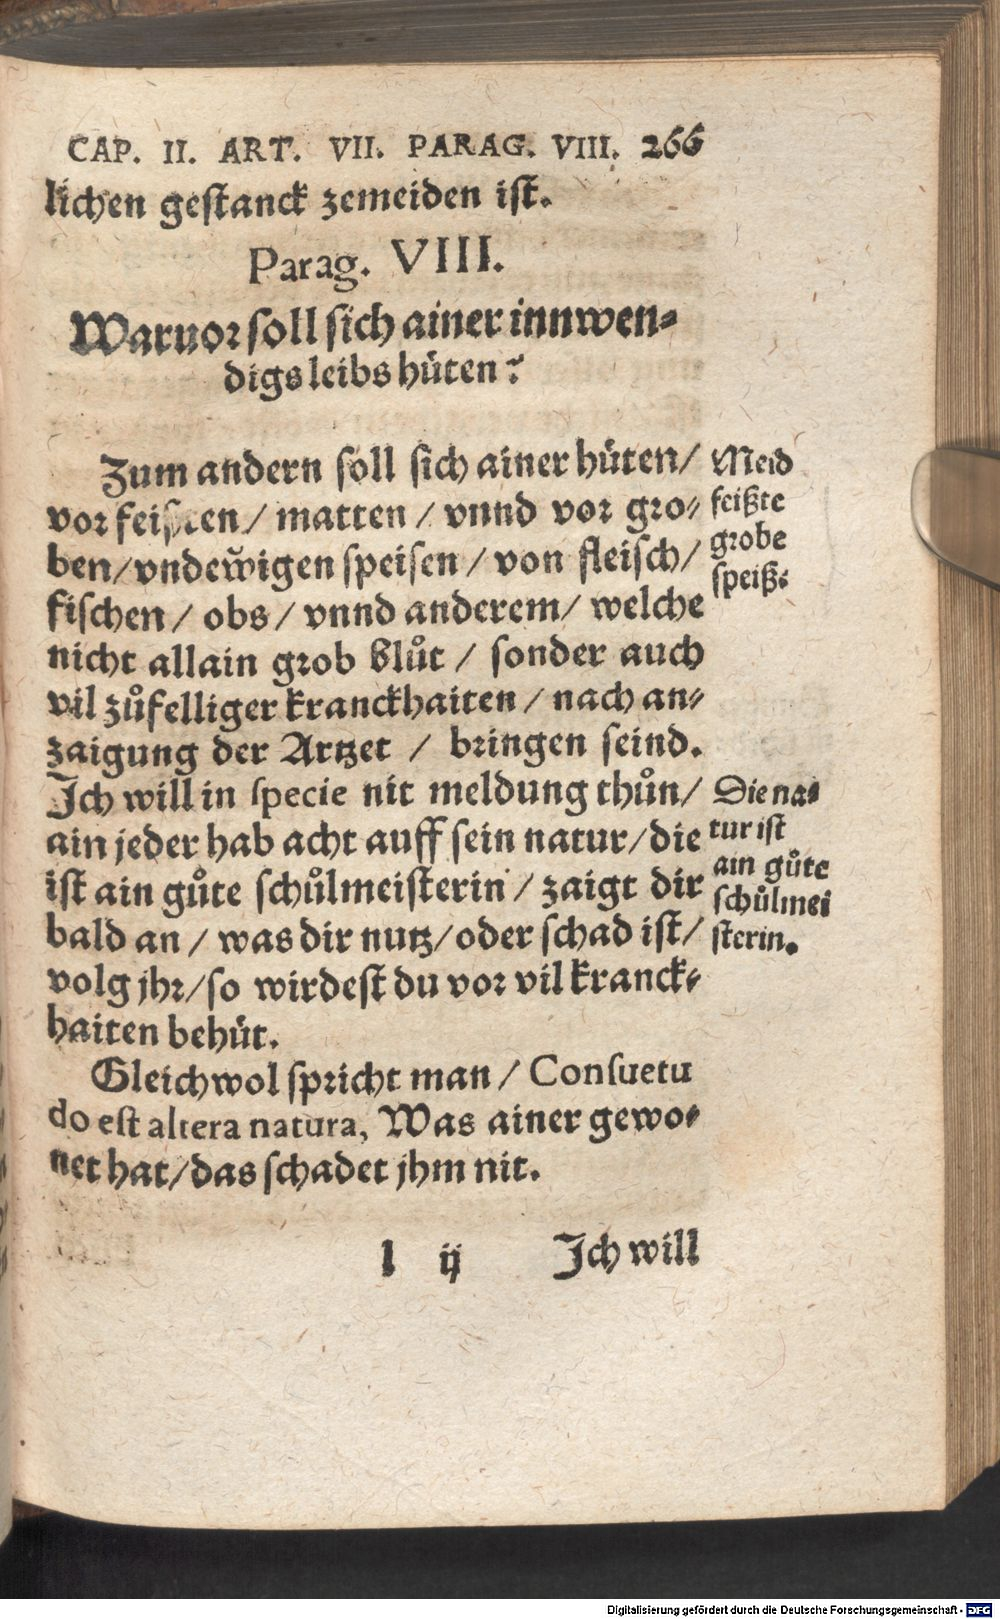 CAP. II. ART. VII. PARAG. VIII. 266
lichen gestanck zemeiden ist.
Parag. VIII.
Waruor soll sich ainer innwen-
digs leibs hüten?
Zum andern soll sich ainer hüten/
vor feisten/ matten/ vnnd vor gro-
ben/ vndewigen speisen/ von fleisch/
fischen/ obs/ vnnd anderem/ welche
nicht allain grob blůt/ sonder auch
vil zůfelliger kranckhaiten/ nach an-
zaigung der Artzet/ bringen seind.
Ich will in specie nit meldung thůn/
ain jeder hab acht auff sein natur/ die
ist ain gůte schůlmeisterin/ zaigt dir
bald an/ was dir nutz/ oder schad ist/
volg jhr/ so wirdest du vor vil kranck-
haiten behüt.
Gleichwol spricht man/ Consuetu
do est altera natura, Was ainer gewo-
net hat/ das schadet jhm nit.
l ij Ich will
Meid
feißte
grobe
speiß:
Die na-
tur ist
ain gůte
schůlmei
sterin.
Digitalisierung gefördert durch die Deutsche Forschungsgemeinschaft - DFG